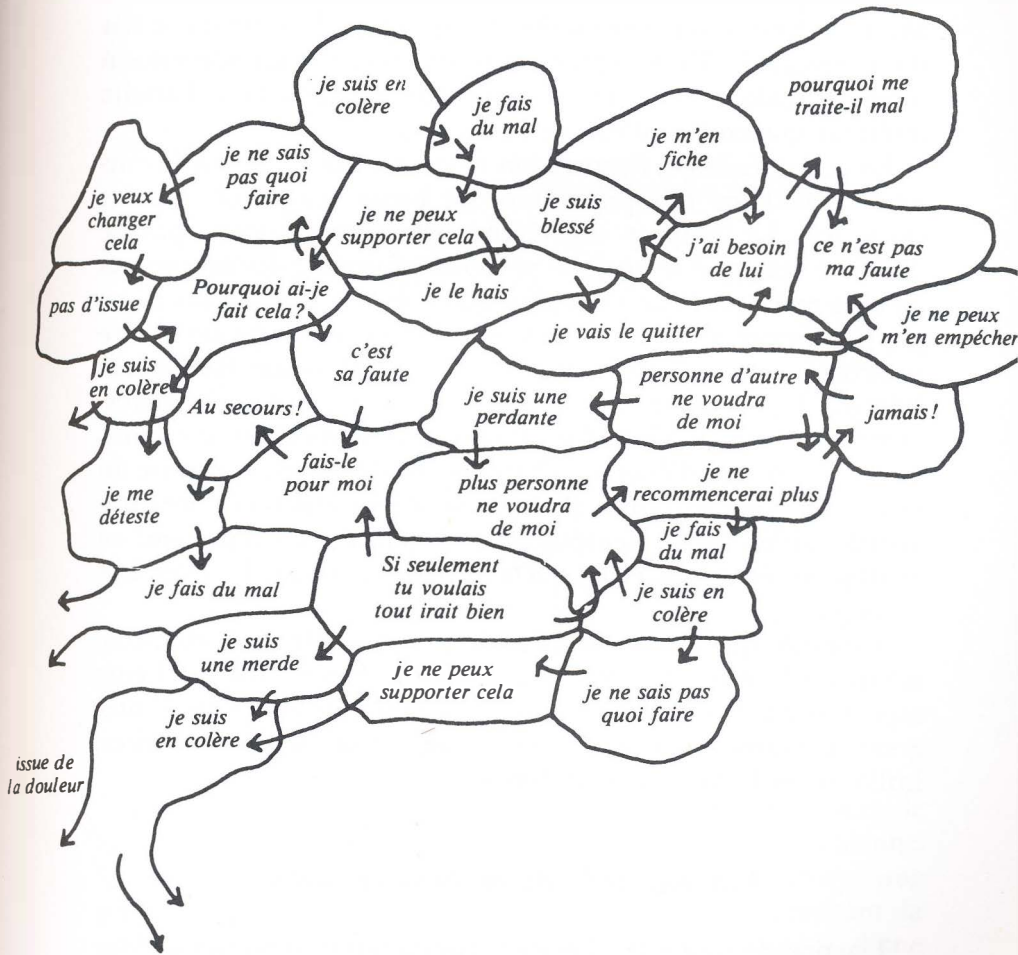 je suis en
colère
je fais
du mal
pourquoi me
traite-il mal
je m'en
fiche
je ne sais
pas quoi
faire
je veux
changer
cela
je ne peux
supporter cela
je suis
blessé
j'ai besoin
de lui
ce n'est pas
ma faute
pas d'issue
Pourquoi ai-je
fait cela?
je le hais
je vais le quitter
je ne peux
m'en empécher
je suis
en colère
c'est
sa faute
je suis une
perdante
personne d'autre
ne voudra
de moi
jamais!
Au secours!
fais-le
pour moi
plus personne
ne voudra
de moi
je ne
recommencerai plus
je me
déteste
je fais
du mal
je fais du mal
Si seulement
tu voulais
tout irait bien
je suis en
colère
je suis
une merde
je ne peux
supporter cela
je ne sais pas
quoi faire
je suis
en colère
issue de
la douleur